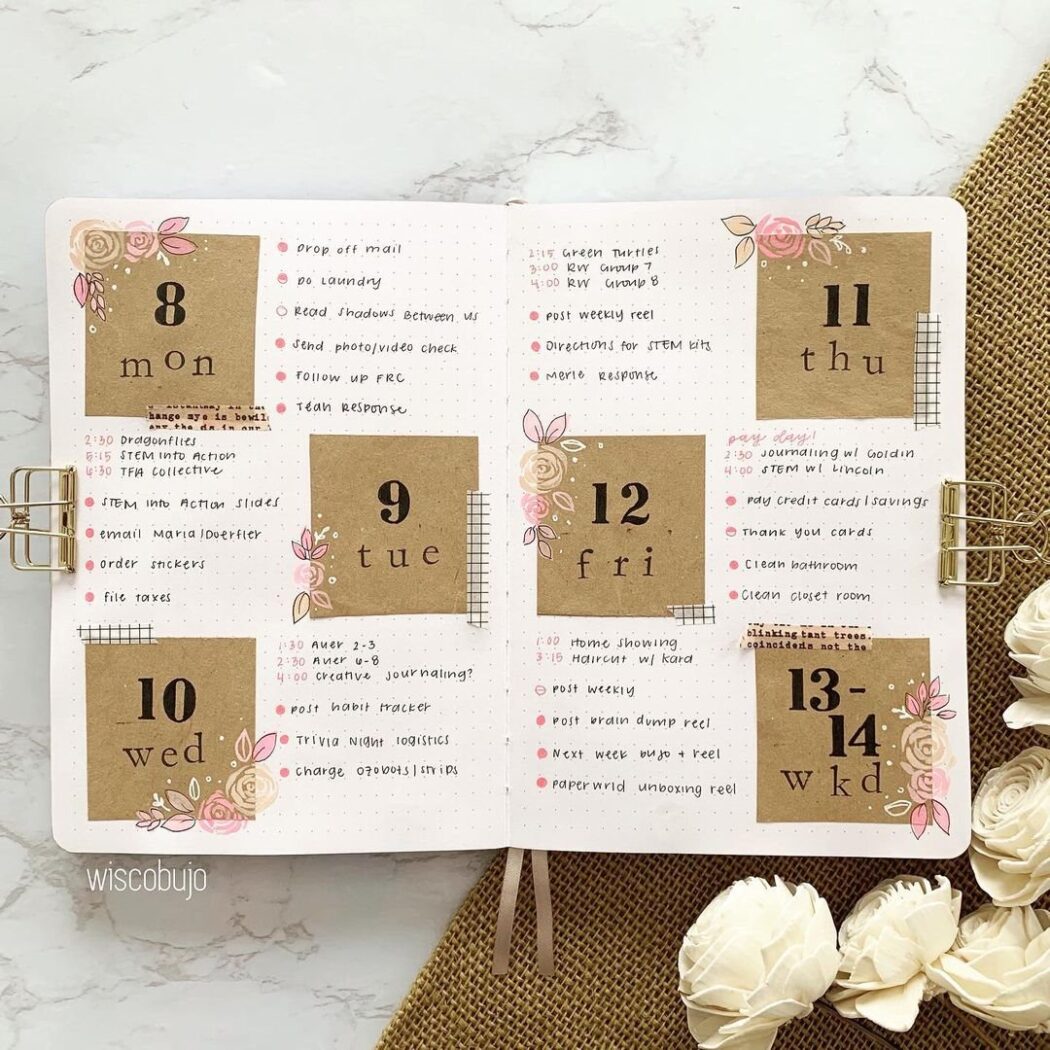 8
mon
Drop off mail
Do Laundry
Read Shadows Between Us
Send photo/video check
Follow up FRC
Teah Response
hange mye is bewil
2:30 Dragonflies
5:15 STEM into Action
6:30 TFA Collective
STEM into Action Slides
email Maria/Doerfler
order stickers
file taxes
9
tue
10
wed
1:30 Auer 2-3
2:30 Auer 6-8
4:00 Creative Journaling?
post habit tracker
Trivia Night logistics
Charge ozobots/strips
2:15 Green Turtles
3:00 RW Group 7
4:00 RW Group 8
post weekly reel
Directions for STEM kits
Merle Response
11
thu
12
fri
pay day!
2:30 Journaling w/ Goldin
4:00 STEM w/ Lincoln
pay credit cards/savings
Thank you cards
Clean bathroom
Clean closet room
1:00 Home Showing
3:15 Haircut w/ Kara
post weekly
post brain dump reel
Next week bujo + reel
paperwrld unboxing reel
blinking tant trees
coincidenis not the
13-
14
wkd
wiscobujo